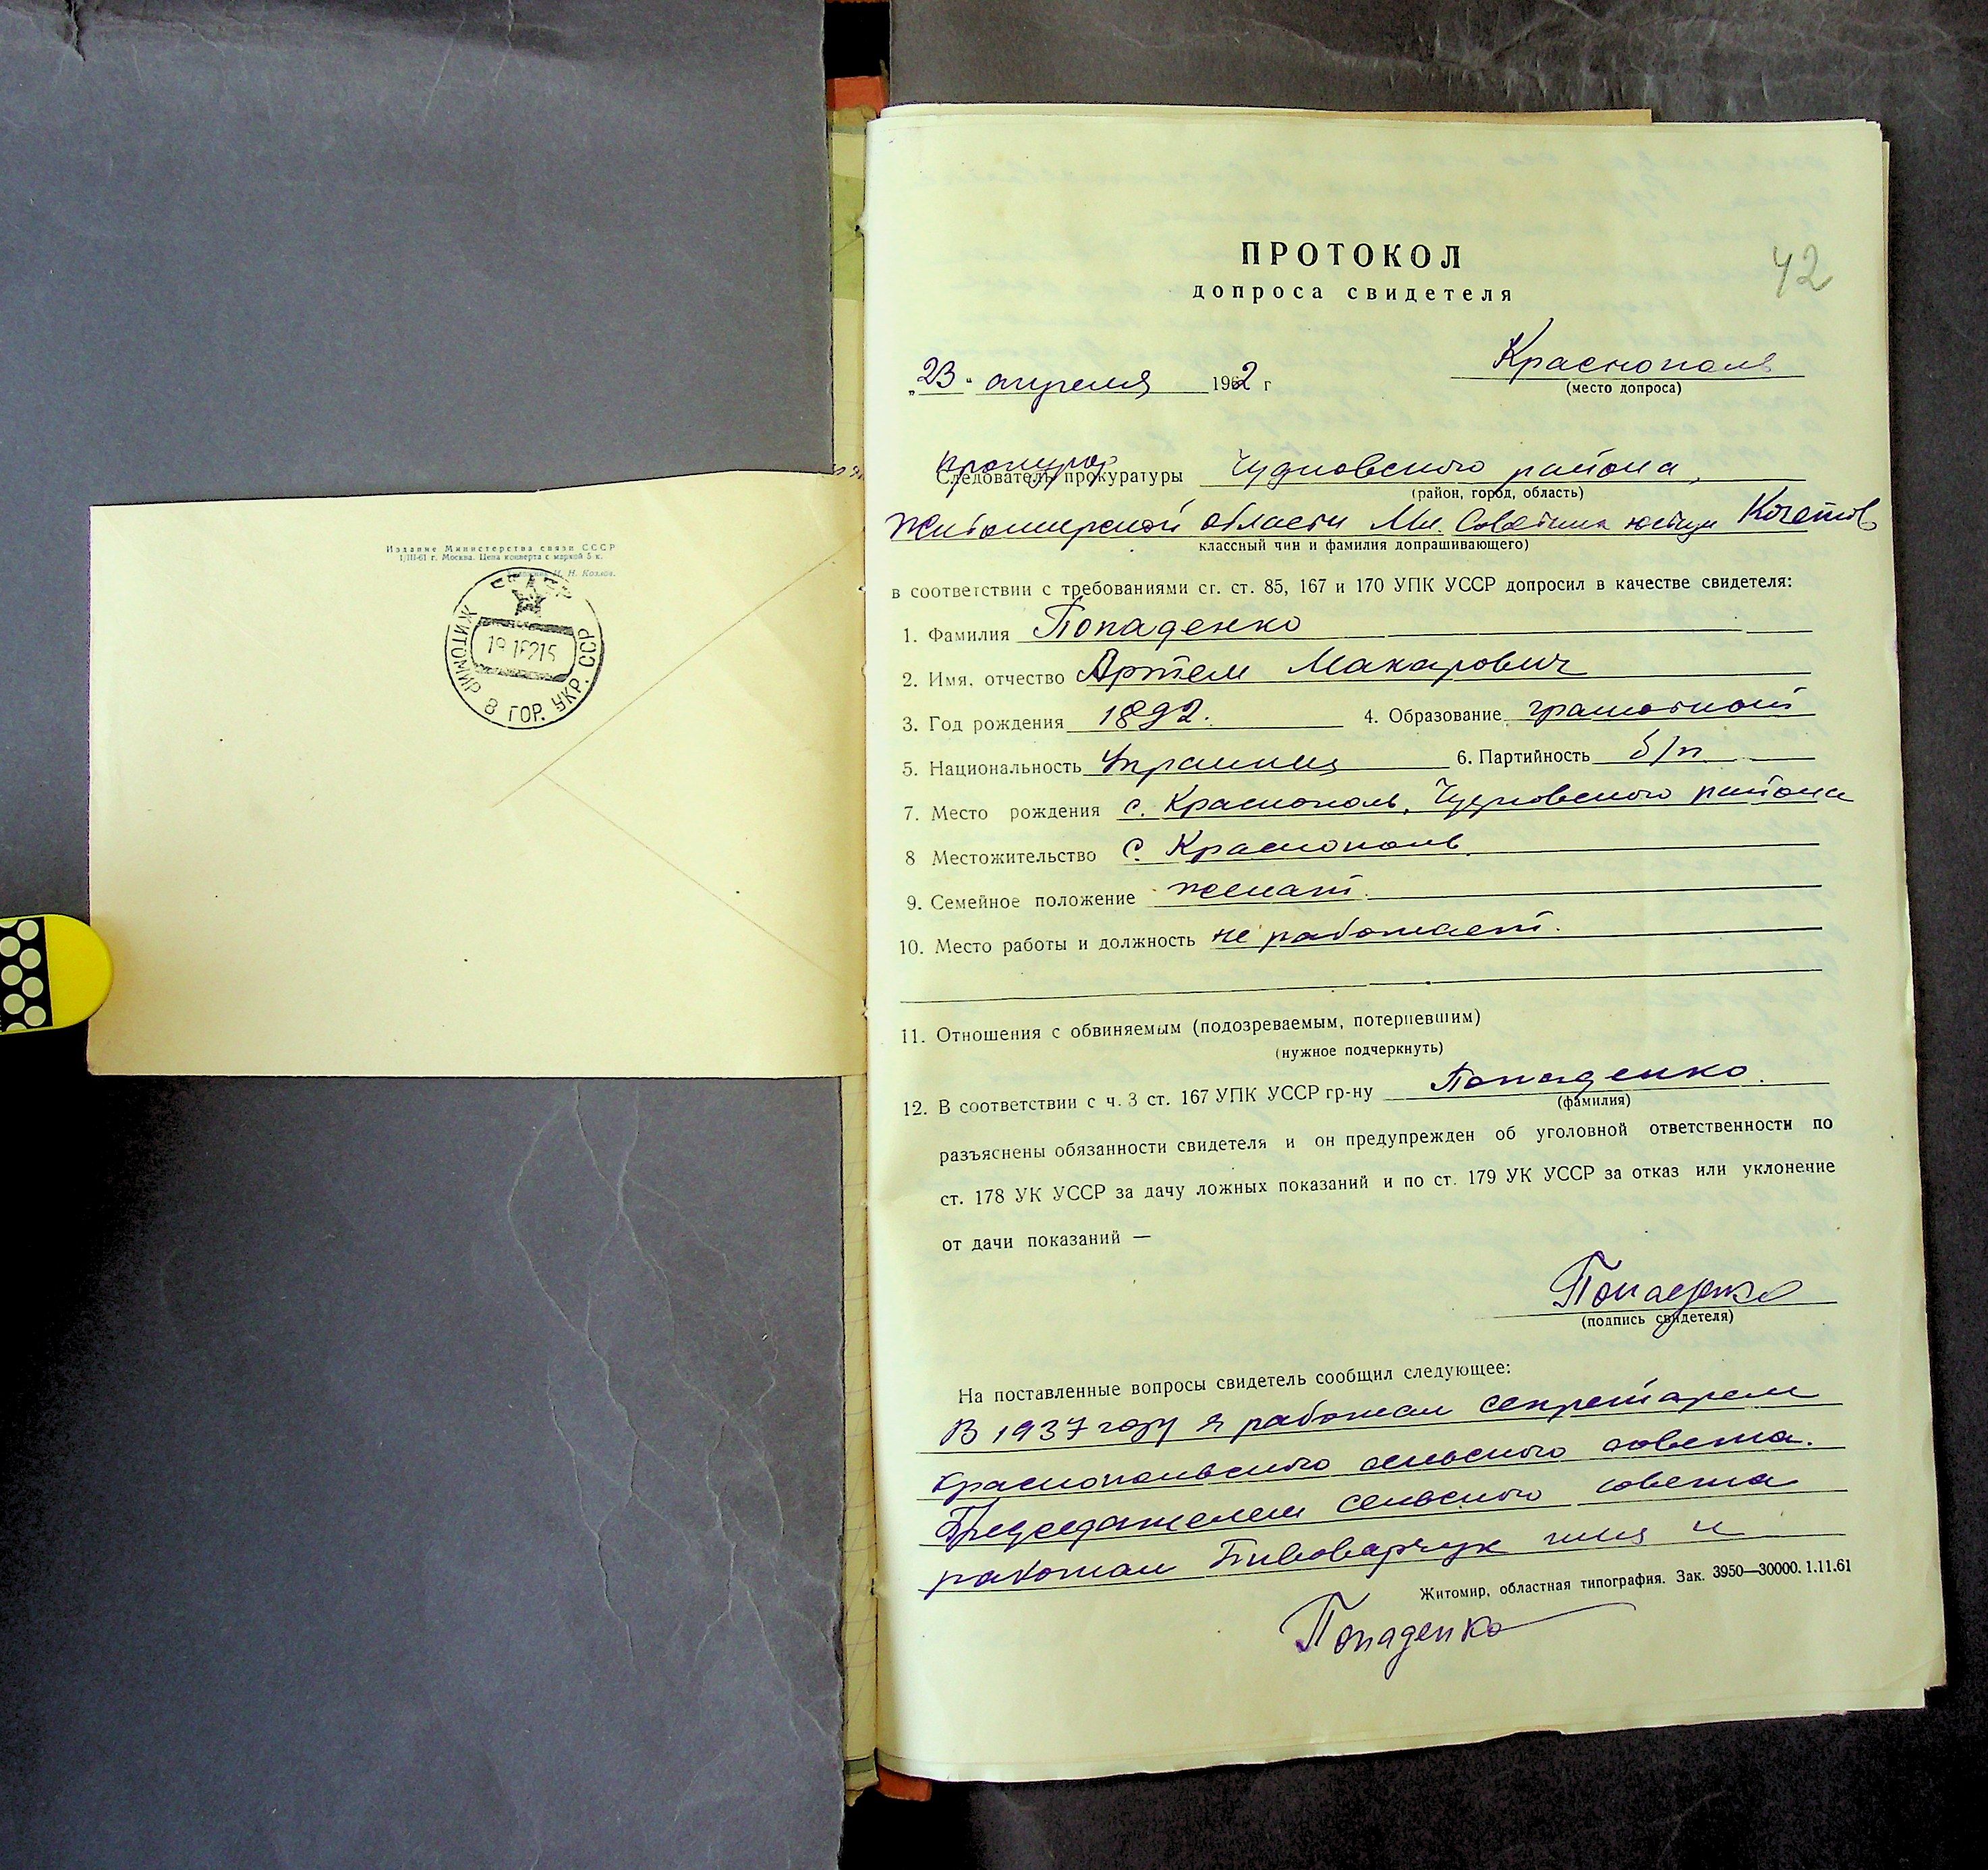 Издание Министерства связи СССР
1/III-61 г. Москва. Цена конверта с маркой 5 к.
Н. Козлов.
ЖИТОМИР 8 ГОР. УКР. ССР
42
ПРОТОКОЛ
допроса свидетеля
„23" апреля 1962 г
Краснополь
(место допроса)
прокурор
Следователь прокуратуры Чудновского района,
(район, город, область)
Житомирской области Мл. Советник юстиции Кочетов
классный чин и фамилия допрашивающего)
в соответствии с требованиями ст. ст. 85, 167 и 170 УПК УССР допросил в качестве свидетеля:
1. Фамилия Попаденко
2. Имя, отчество Артем Макарович
3. Год рождения 1892. 4. Образование грамотный
5. Национальность Украинец 6. Партийность б/п
7. Место рождения с. Краснополь, Чудновского района
8 Местожительство с. Краснополь
9. Семейное положение женат.
10. Место работы и должность не работает.
11. Отношения с обвиняемым (подозреваемым, потерпевшим)
(нужное подчеркнуть)
12. В соответствии с ч. 3 ст. 167 УПК УССР гр-ну Попаденко.
(фамилия)
разъяснены обязанности свидетеля и он предупрежден об уголовной ответственности по
ст. 178 УК УССР за дачу ложных показаний и по ст. 179 УК УССР за отказ или уклонение
от дачи показаний —
Попаденко
(подпись свидетеля)
На поставленные вопросы свидетель сообщил следующее:
В 1937 году я работал секретарем
Краснопольского сельского совета.
Председателем сельского совета
работал Пивоварчук
Житомир, областная типография. Зак. 3950—30000. 1.11.61
Попаденко